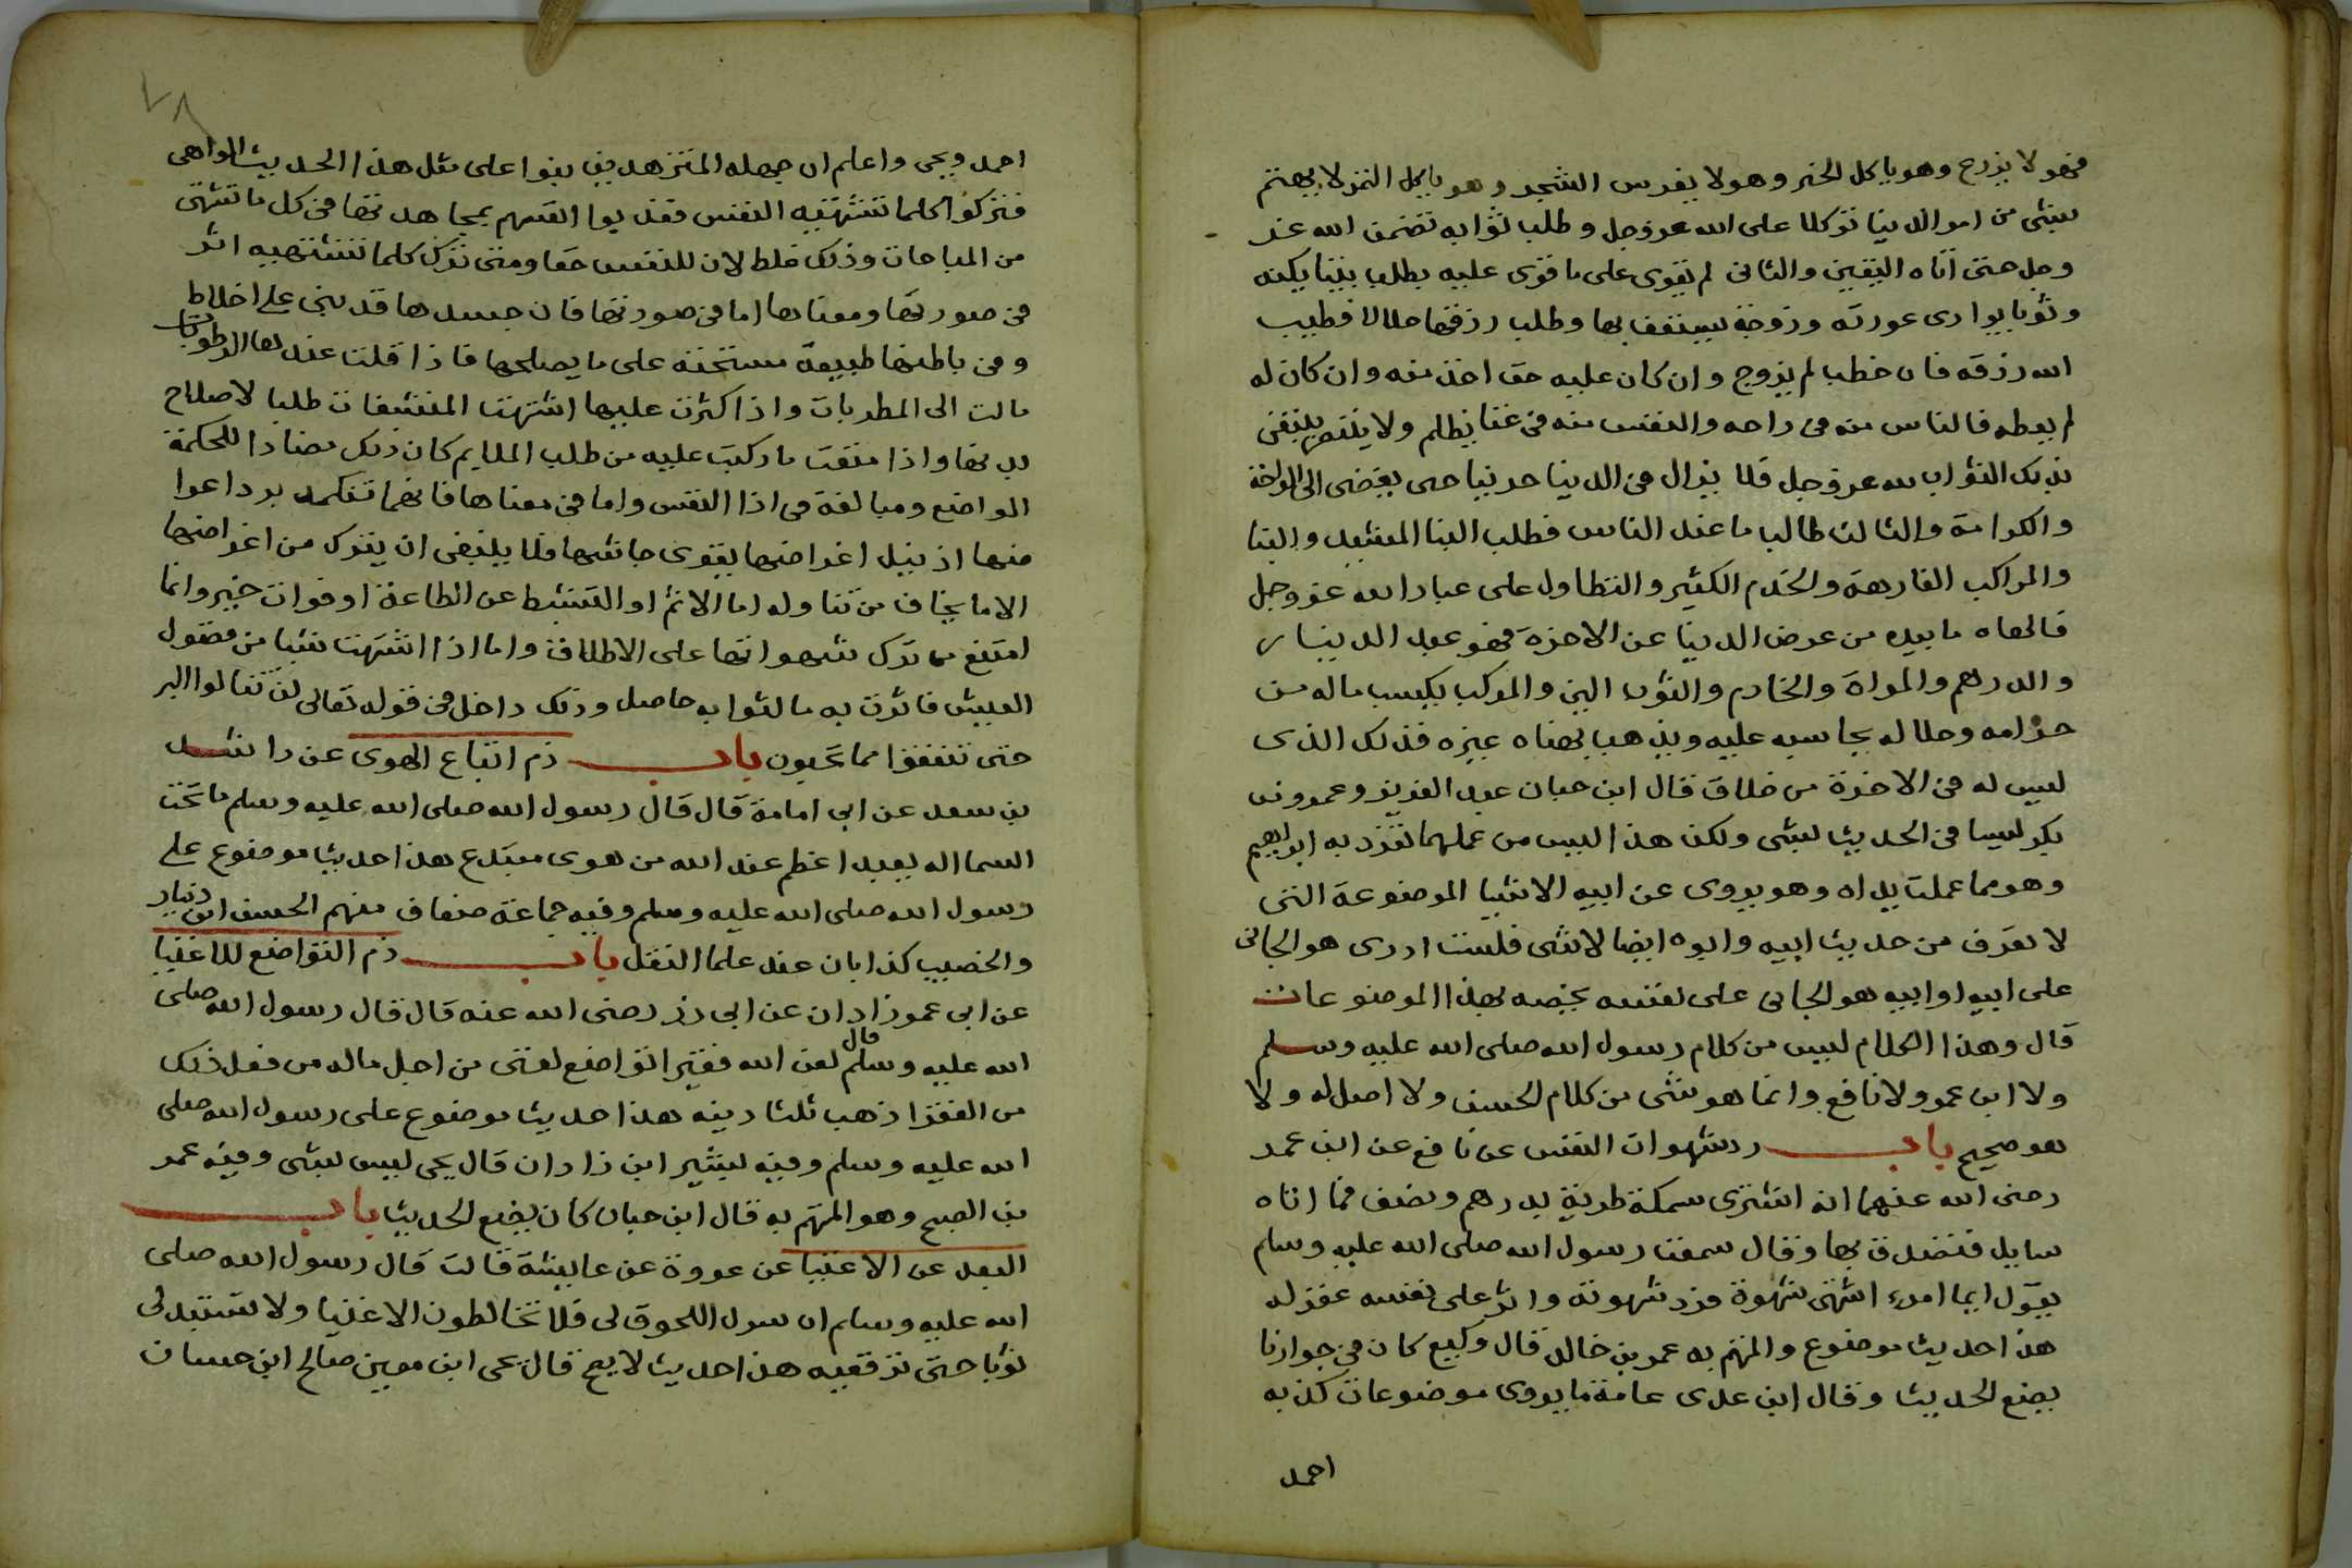 فهو لا يزرع وهو ياكل الخبز وهو لا يغرس الشجر وهو ياكل الثمر لا يهتم
بشى من امر الدنيا توكلا على الله عز وجل وطلب ثوابه تضمن الله عز
وجل حتى اتاه اليقين والثانى لم يقوى على ما قوى عليه يطلب بيتا يكنه
وثوبا يوارى عورته وزوجة يستعف بها وطلب رزقها حلالا فطيب
الله رزقه فان خطب لم يزوج وان كان عليه حق اخذ منه وان كان له
لم يعطه فالناس منه فى راحه والنفس منه فى عنا يظلم ولا ينتصر يبتغى
بذلك الثواب لله عز وجل فلا يزال فى الدنيا حزينا حتى يفضى الى الراحة
والكرامة والثالث طالب ما عند الناس فطلب البنا المشيد والبنا
والمراكب الفارهة والخدم الكثير والتطاول على عباد الله عز وجل
فالهاه ما بيده من عرض الدنيا عن الاخرة فهو عبد الدينار
والدرهم والمراة والخادم والثوب اللين والمركب يكسب ماله من
حرامه وحلاله يحاسب عليه ويذهب بهناه غيره فذلك الذى
ليس له فى الاخرة من خلاق قال ابن حبان عبد العزيز وعمرو بن
بكر ليسا فى الحديث بشى ولكن هذا ليس من عملهما تفرد به ابراهيم
وهو مما عملت يداه وهو يروى عن ابيه الاشيا الموضوعة التى
لا تعرف من حديث ابيه وابوه ايضا لا شى فلست ادرى هو الجانى
على ابيه او ابيه هو الجانى على نفسه يخصه بهذا الموضوعات
قال وهذا الكلام ليس من كلام رسول الله صلى الله عليه وسلم
ولا ابن عمر ولا نافع وانما هو شى من كلام الحسن ولا اصل له ولا
هو صحيح باب رد شهوات النفس عن نافع عن ابن عمر
رضى الله عنهما انه اشترى سمكة طرية بدرهم ونصف فما اتاه
سايل فتصدق بها وقال سمعت رسول الله صلى الله عليه وسلم
يقول ايما امرء اشتهى شهوة فرد شهوته واثر على نفسه غفر له
هذا حديث موضوع والمتهم به عمر بن خالد قال وكيع كان فى جوارنا
يضع الحديث وقال ابن عدى عامة ما يروى موضوعات كذبه
احمد
٧٨
احمد ويحى واعلم ان جهله المتزهدين بنوا على مثل هذا الحديث الواهى
فتركوا كلما تشتهيه النفس فعذبوا انفسهم بمجاهدتها فى كل ما تشتهى
من المباحات وذلك غلط لان للنفس حقا ومتى ترك كلما تشتهيه اثر
فى صورتها ومعناها اما فى صورتها فان جسدها قد بنى على اخلاط
وفى باطنها طبيعة مستحثة على ما يصلحها فاذا قلت عندها الرطوبات
مالت الى المطربات واذا كثرت عليها اشتهت المنشفات طلبا لاصلاح
بدنها واذا منعت ما ركبت عليه من طلب الملايم كان ذلك مضادا للحكمة
المواضع ومبالغة فى اذا النفس واما فى معناها فانهما تنكمد برد اعوا
منها اذ بنيل اغراضها يقوى جاشها فلا ينبغى ان يترك من اغراضها
الا ما يخاف من تناوله اما الاثم او التثبط عن الطاعة او فوات خير وانما
امتنع من ترك شهواتها على الاطلاق واما اذا اشتهت شيا من فضول
العيش فاثرت به مالثواب حاصل وذلك داخل فى قوله تعالى لن تنالوا البر
حتى تنفقوا مما تحبون باب ذم اتباع الهوى عن راشد
بن سعد عن ابى امامة قال قال رسول الله صلى الله عليه وسلم ما تحت
السما اله يعبد اعظم عند الله من هوى متبع هذا حديث موضوع على
رسول الله صلى الله عليه وسلم وفيه جماعة ضعاف منهم الحسن ابن دينار
والخصيب كذابان عند علما النقل باب ذم التواضع للاغنيا
عن ابى عمر زادان عن ابى ذر رضى الله عنه قال قال رسول الله صلى
الله عليه وسلم قال لعن الله فقيرا تواضع لغنى من اجل ماله من فعل ذلك
من الفقرا ذهب ثلثا دينه هذا حديث موضوع على رسول الله صلى
الله عليه وسلم وفيه بشير ابن زادان قال يحى ليس بشى وفيه عمر
بن الصبح وهو المتهم به قال ابن حبان كان يضع الحديث باب
البعد عن الاغنيا عن عروة عن عايشة قالت قال رسول الله صلى
الله عليه وسلم ان سرك اللحوق لى فلا تخالطون الاغنيا ولا تستبدلى
ثوبا حتى ترقعيه هذا حديث لا يصح قال يحى ابن معين صالح ابن حسان